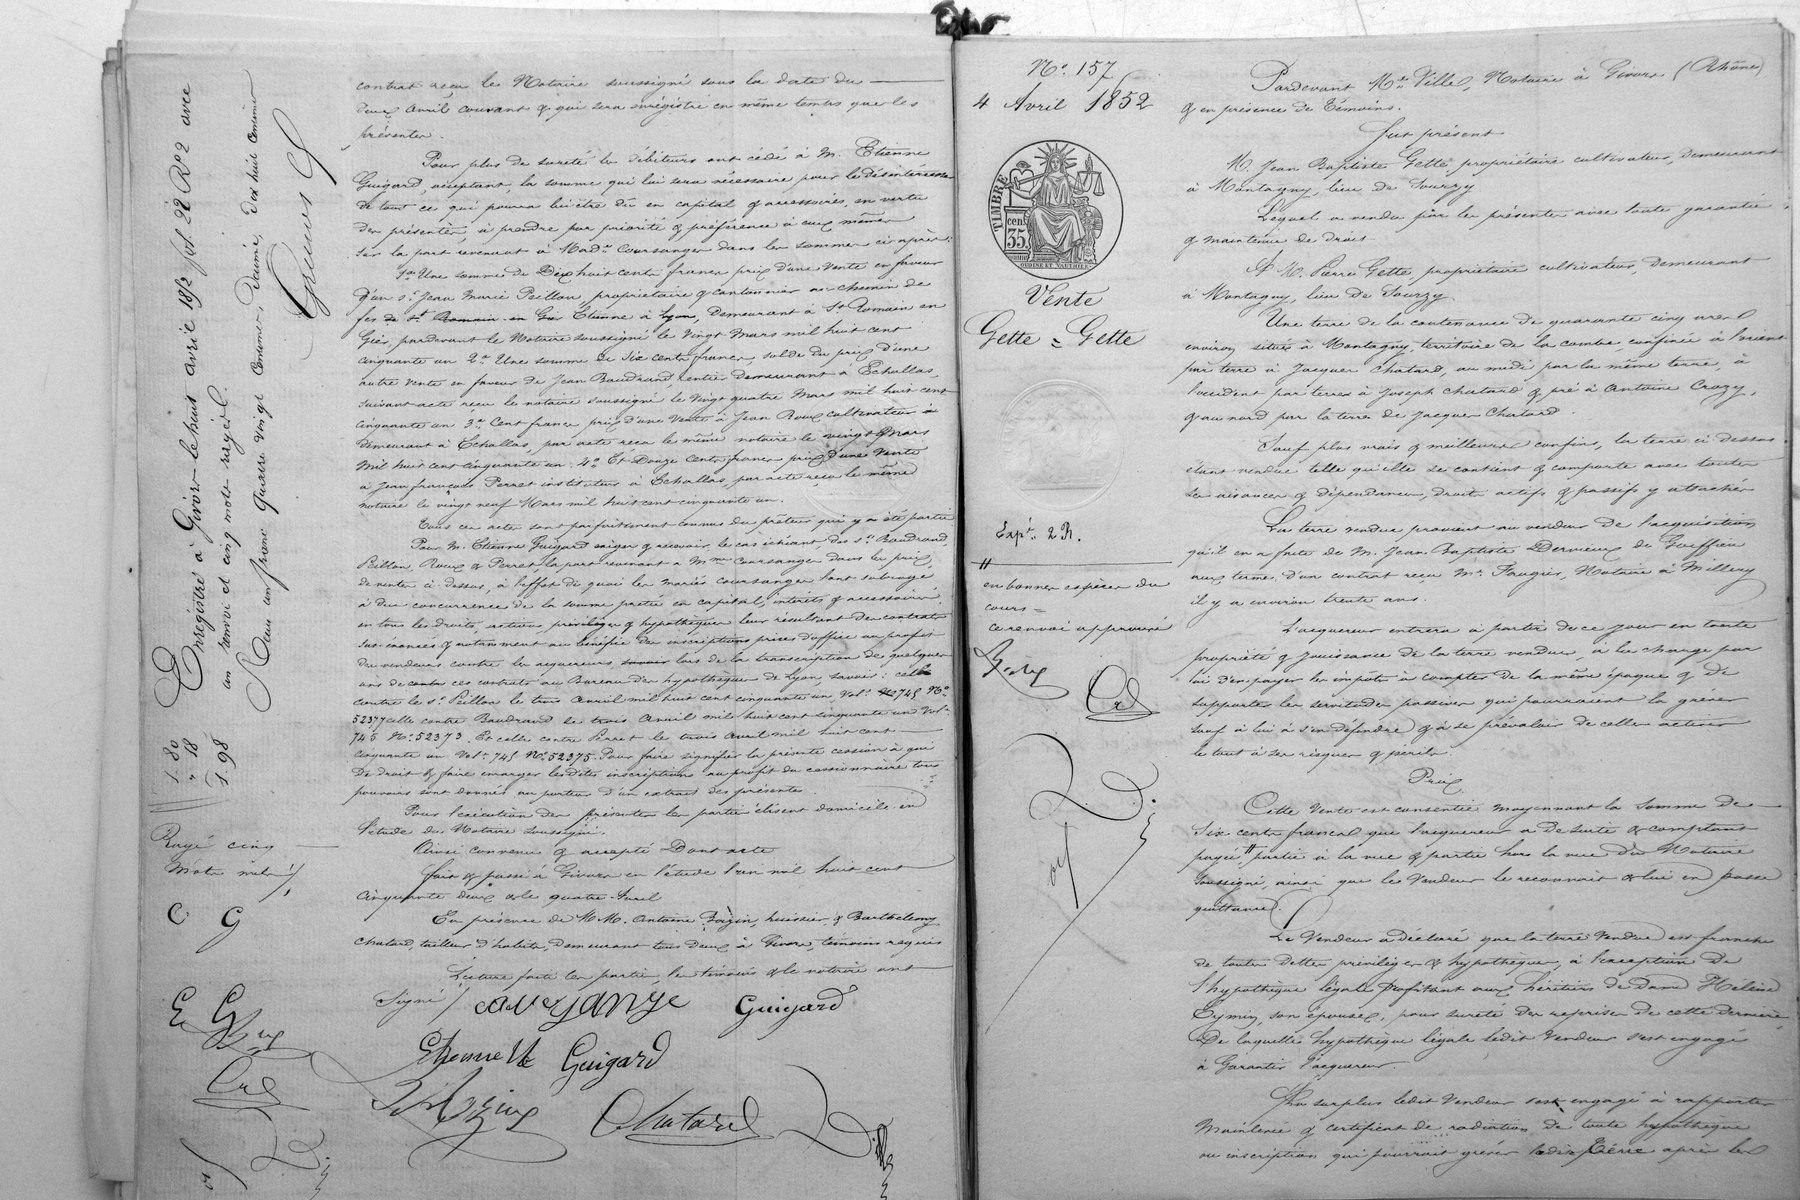 contrat reçu le Notaire soussigné sous la date du
deux avril courant & qui sera enregistré en même temps que les
présentes.
Pour plus de sureté les débiteurs ont cédé à M. Etienne
Guigard, acceptant, la somme qui lui sera nécessaire pour le désintéresser
de tout ce qui pourra lui être dû en capital & accessoires, en vertu
des présentes, à prendre par priorité & préférence à eux mêmes
sur la part revenant à Mad.e Coursange dans les sommes ci après:
1.o Une somme de Dix huit cents francs prix d'une vente en faveur
d'un s.r Jean Marie Peillon propriétaire & cantonnier au chemin de
fer de St Romain en Gier Etienne à Lyon, demeurant à St Romain en
Gier, pardevant le Notaire soussigné le vingt Mars mil huit cent
cinquante un 2.o Une somme de Six cents francs, solde du prix d'une
autre vente en faveur de Jean Baudrand rentier demeurant à Echallas,
suivant acte reçu le notaire soussigné le vingt quatre Mars mil huit cent
cinquante un 3.o Cent francs prix d'une vente à Jean Roux cultivateur
demeurant à Echallas, par acte reçu le même notaire le vingt Mars
mil huit cent cinquante un. 4.o Et Douze cents francs prix d'une vente
à Jean françois Perret instituteur à Echallas, par acte reçu le même
notaire le vingt neuf Mars mil huit cent cinquante un.
Tous ces actes sont parfaitement connus du prêteur qui y a été partie
Pour M. Etienne Guigard exiger & recevoir, le cas échéant, des s.rs Baudrand,
Peillon, Roux & Perret la part revenant à Mme Coursange dans les prix
de vente ci dessus, à l'effet de quoi les mariés Coursange l'ont subrogé
à due concurrence de la somme prêtée en capital, intérêts & accessoires
en tous les droits, actions privilèges & hypothèques leur résultant des contrats
sus énoncés & notamment au bénéfice des inscriptions prises d'office au profit
des vendeurs contre les acquéreurs, savoir lors de la transcription de quelques
uns de ces contrats au Bureau des hypothèques de Lyon, savoir: celle
contre le s.r Peillon le trois Avril mil huit cent cinquante un Vol. 745 No
52377 celle contre Baudrand le trois Avril mil huit cent cinquante un Vol.
745 No 52373. Et celle contre Perret le trois Avril mil huit cent
cinquante un Vol. 745 No 52375. Pour faire signifier la présente cession à qui
de droit & faire émarger lesdites inscriptions au profit du cessionnaire tous
pouvoirs sont donnés au porteur d'un extrait des présentes.
Pour l'exécution des présentes les parties élisent domicile en
l'étude du Notaire soussigné.
Ainsi convenu & accepté Dont acte
fait & passé à Givors en l'étude l'an mil huit cent
cinquante deux & le quatre Avril
En présence de M.M. Antoine Bazin, huissier, & Barthelemy
Chatard, tailleur d'habits, demeurant tous deux à Givors, témoins requis
Lecture faite les parties, les témoins & le notaire ont
Signé /
Coursange Guigard
Etiennette Guigard
Chatard
Enregistré à Givors le huit avril 1852 fol 22 Ro C 2 avec
un renvoi et cinq mots rayés.
Reçu un franc quatre vingt centimes, décime, dix huit centimes
1. 80
" 18
1. 98
Rayé cinq
Mots nuls /
C G
E G
No 157
4 Avril 1852
TIMBRE
35 cent
OUDINE ET VAUTHIER
Vente
Gette = Gette
Exp.e 2 R.
//
en bonnes espèces du
cours =
ce renvoi approuvé
Pardevant Me Ville, Notaire à Givors (Rhône)
& en présence de Témoins.
Fut présent
M. Jean Baptiste Gette propriétaire cultivateur, demeurant
à Montagny, lieu de Sourzy
Lequel a vendu par les présentes avec toute garantie
& maintenue de droit
A M. Pierre Gette propriétaire cultivateur, demeurant
à Montagny, lieu de Sourzy.
Une terre de la contenance de quarante cinq ares
environ située à Montagny, territoire de la combe, confinée à l'orient
par terre à Jacques Chatard, au midi par la même terre, à
l'occident par terres à Joseph Chatard & pré à Antoine Crozy,
& au nord par la terre de Jacques Chatard.
Sauf plus vrais & meilleurs confins, la terre ci dessus
étant vendue telle qu'elle se contient & comporte avec toutes
ses aisances & dépendances, droits actifs & passifs y attachés
La terre vendue provient au vendeur de l'acquisition
qu'il en a faite de M. Jean Baptiste Dervieux de Goiffieu
aux termes d'un contrat reçu Me Faugris, Notaire à Millery
il y a environ trente ans.
L'acquéreur entrera à partir de ce jour en toute
propriété & jouissance de la terre vendue, à la charge par
lui d'en payer les impôts à compter de la même époque & de
supporter les servitudes passives qui pourraient la grever
sauf à lui à s'en défendre & à se prévaloir de celles actives
le tout à ses risques & périls.
Prix
Cette vente est consentie moyennant la somme de
Six cents francs que l'acquéreur a de suite & comptant
payée // partie à la vue & partie hors la vue du Notaire
soussigné, ainsi que le vendeur le reconnait & lui en passe
quittance.
Le Vendeur a déclaré que la terre vendue est franche
de toutes dettes privilèges & hypothèques, à l'exception de
l'hypothèque légale profitant aux héritiers de dame Hélène
Eymin, son épouse, pour sureté des reprises de cette dernière
De laquelle hypothèque légale ledit Vendeur s'est engagé
à Garantir l'acquéreur.
Au surplus ledit Vendeur s'est engagé à rapporter
Mainlevée & certificat de radiation de toute hypothèque
ou inscription qui pourrait grever ladite terre après les